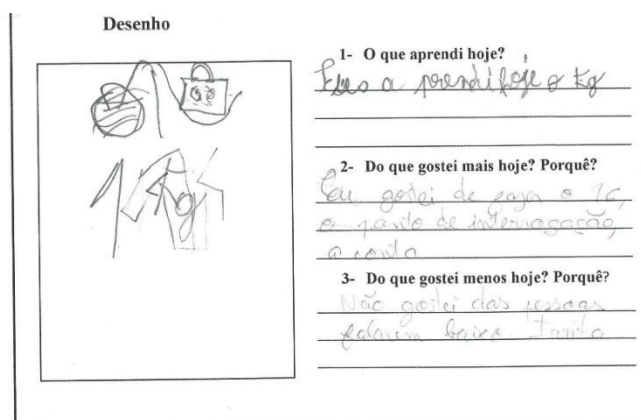 Desenho
1 Kg
1- O que aprendi hoje?
Eu a prendi foje o Kg
2- Do que gostei mais hoje? Porquê?
Eu gostei de o
o de interrogação,
a conta
3- Do que gostei menos hoje? Porquê?
Não gostei das pessoas
falarem baixo.